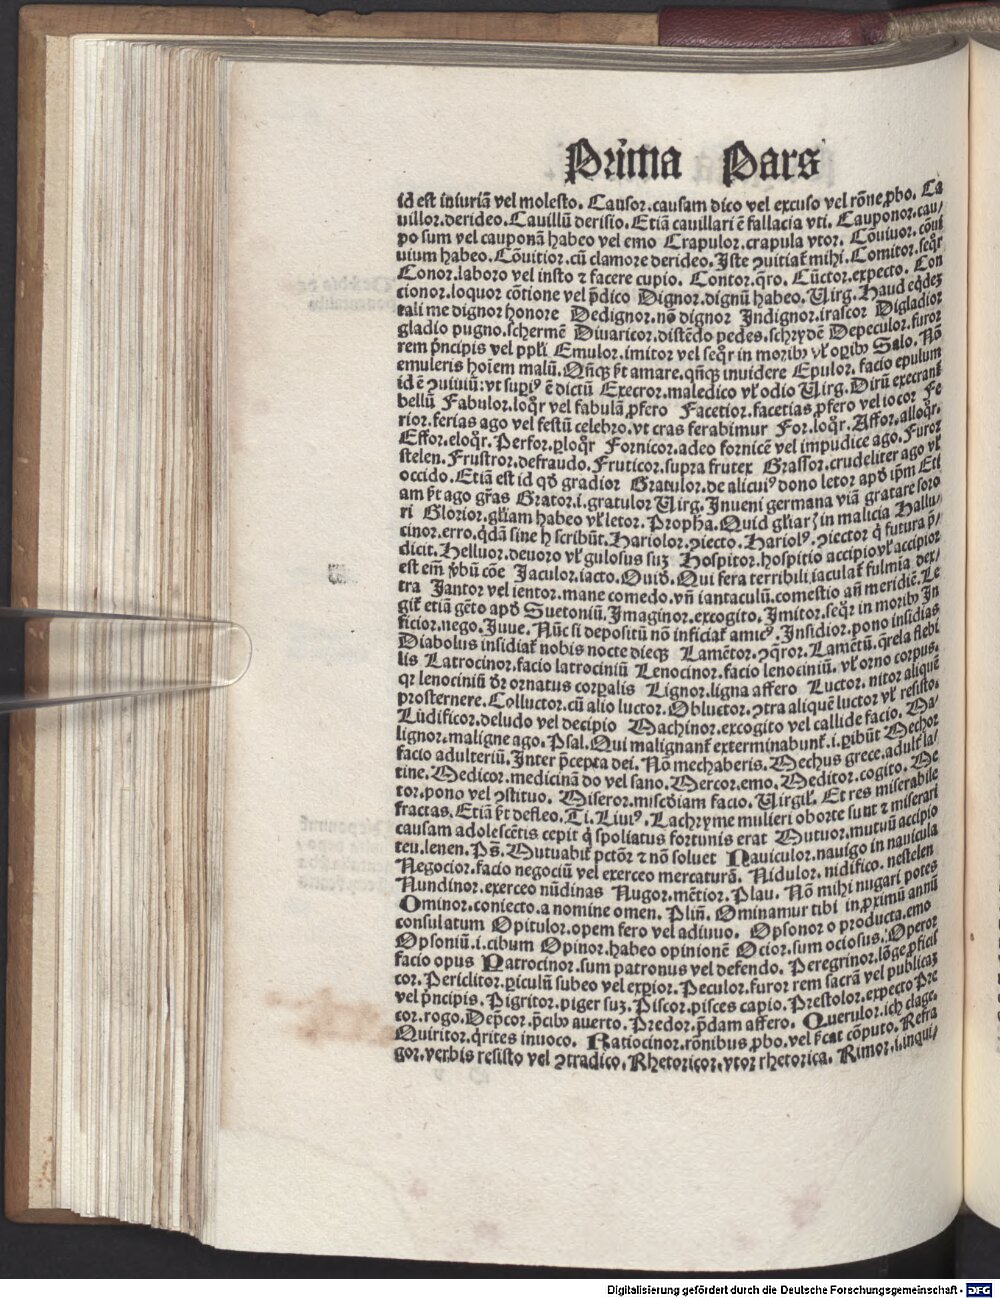 Prima Pars
id est iniuriā vel molesto. Causor.causam dico vel excuso vel rōne ꝓbo. Ca
uillor.derideo.Cauillū derisio.Etiā cauillari ē fallacia vti. Cauponor.cau/
po sum vel cauponā habeo vel emo Crapulor.crapula vtor. Cōuiuor.cōui
uium habeo. Cōuitior.cū clamore derideo.Iste ꝯuitiaꝉ mihi.Comitor.seqr̄
Conor.laboro vel insto ⁊ facere cupio. Contor.q̄ro. Cūctor.expecto. Con
cionor.loquor cōtione vel p̄dico Dignor.dignū habeo.Virg.Haud eqdeꝫ
tali me dignor honore Dedignor.nō dignor Indignor.irascor Digladior
gladio pugno.schermē Diuaricor.distēdo pedes.schrydē Depeculor.furor
rem p̄ncipis vel ppl̄i Emulor.imitor vel seqr̄ in moribꝰ vl̄ oꝑibꝰ Salo. Nō
emuleris hoīem malū. Qn̄qꝫ ē amare.qn̄qꝫ inuidere Epulor. facio epulum
id ē ꝯuiuiū:vt supiꝰ ē dictū Execror.maledico vl̄ odio Virg.Dirū execrant
bellū Fabulor.loqr̄ vel fabulā ꝓfero Facetior.facetias ꝓfero vel iocor Fe
rior.ferias ago vel festū celebro.vt cras ferabimur For.loqr̄. Affor.alloqr̄.
Effor.eloqr̄.Perfor.ꝑloqr̄ Fornicor.adeo fornicē vel impudice ago.Furor
stelen.Frustror.defraudo.Fruticor.supra frutex Grassor.crudeliter ago vl̄
occido.Etiā est id qd̄ gradior Gratulor.de alicuiꝰ dono letor apd̄ ip̄m Eti
am ē ago gr̄as Grator.i.gratulor Virg.Inueni germana viā gratare soro
ri Glorior.gl̄iam habeo vl̄ letor.Proph̄a.Quid gl̄iaris in malicia Hallu/
cinor.erro.qdā sine h scribūt.Hariolor.ꝯiecto.Hariolꝰ.ꝯiector q̄ futura p̄/
dicit.Helluor.deuoro vl̄ gulosus suꝫ Hospitor.hospitio accipio vl̄ accipior
est em̄ v̄bū cōe Iaculor.iacto.Ouid.Qui fera terribili iaculaꝉ fulmīa dex/
tra Iantor vel ientor.mane comedo.vn̄ iantaculū.comestio an̄ meridiē.Le
giꝉ etiā gēto apd̄ Suetoniū.Imaginor.excogito.Imitor.seqr̄ in moribꝰ In
ficior.nego.Iuue. Nūc si depositū nō inficiaꝉ amicꝰ.Insidior.pono insidias
Diabolus insidiaꝉ nobis nocte dieqꝫ Lamētor.ꝯq̄ror.Lamētū.q̄rela flebi
lis Latrocinor.facio latrociniū Lenocinor.facio lenociniū. vl̄ orno corpus.
qr̄ lenociniū dr̄ ornatus corꝑalis Lignor.ligna affero Luctor.nitor aliquē
prosternere.Colluctor.cū alio luctor.Obluctor.ꝯtra aliquē luctor vl̄ resisto.
Ludificor.deludo vel decipio Machinor.excogito vel callide facio. Ma/
lignor.maligne ago.Psal.Qui malignanꝉ exterminabunꝉ.i.ꝑibūt Mechor
facio adulteriū.Inter p̄cepta dei. Nō mechaberis.Mechus grece.adulꝉ la/
tine.Medicor.medicinā do vel sano.Mercor.emo.Meditor.cogito. Me
tor.pono vel ꝯstituo. Miseror.misc̄diam facio. Virgil. Et res miserabile
fractas.Etiā ē defleo.Ti.Liuiꝰ.Lachryme mulieri oborte sunt ⁊ miserari
causam adolescētis cepit q̄ spoliatus fortunis erat Mutuor.mutuū accipio
teu.lenen.Ps.Mutuabiꝉ pctōr ⁊ nō soluet Nauiculor.nauigo in nauicula
Negocior.facio negociū vel exerceo mercaturā. Nidulor. nidifico. nestelen
Nundinor.exerceo nūdinas Nugor.mētior.Plau. Nō mihi nugari potes
Ominor.coniecto.a nomine omen. Plin. Ominamur tibi in ꝓximū annū
consulatum Opitulor.opem fero vel adiuuo. Opsonor o producta.emo
Opsoniū.i.cibum Opinor.habeo opinionē Ocior.sum ociosus. Operor
facio opus Patrocinor.sum patronus vel defendo. Peregrinor.lōge ꝓficis
cor. Periclitor.ꝑiculū subeo vel exꝑior. Peculor.furor rem sacrā vel publicaꝫ
vel p̄ncipis.Pigritor.piger suꝫ.Piscor.pisces capio.Prestolor.expecto Pre
cor.rogo.Dep̄cor.p̄cibꝰ auerto.Predor.p̄dam affero. Querulor.ich clage.
Quiritor.q̄rites inuoco. Ratiocinor.rōnibus ꝓbo.vel ē cōputo. Refra
gor.verbis resisto vel ꝯtradico.Rhetoricor.vtor rhetorica. Rimor.i.inqui/
Digitalisierung gefördert durch die Deutsche Forschungsgemeinschaft - DFG